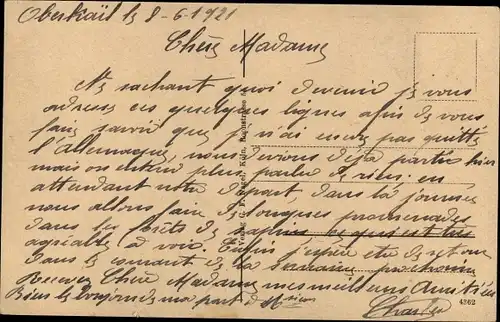 Oberkail le 8-6-1921
Chère Madame
Ne sachant quoi devenir je vous
adresse ces quelques lignes afin de vous
faire savoir que je n'ai encore pas quitté
l'Allemagne, nous devions déjà partir hier
mais on entend plus parler de rien. en
attendant notre départ, dans la journée
nous allons faire de longues promenades
dans les forêts de sapins ce qui est très
agréable à voir. Enfin j'espère être de retour
dans le courant de la semaine prochaine
Recevez Chère Madame mes meilleurs Amitiés
Bien le bonjour de ma part à Msieur
Charles
Köln, Bachstrasse
4362